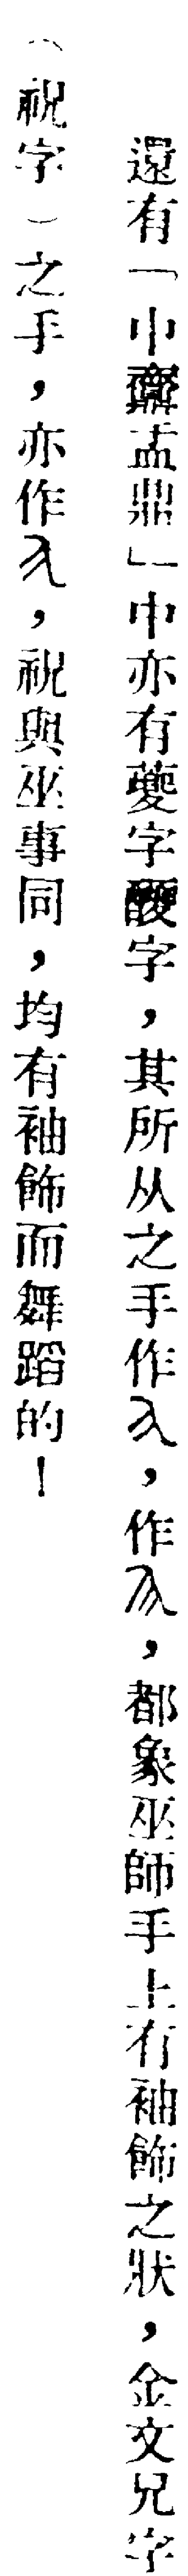 還有「巾盂鼎」中亦有字字，其所从之手作，作，都象巫師手上有袖飾之狀，金文兄字
（祝字）之手，亦作，祝與巫事同，均有袖飾而舞蹈的！